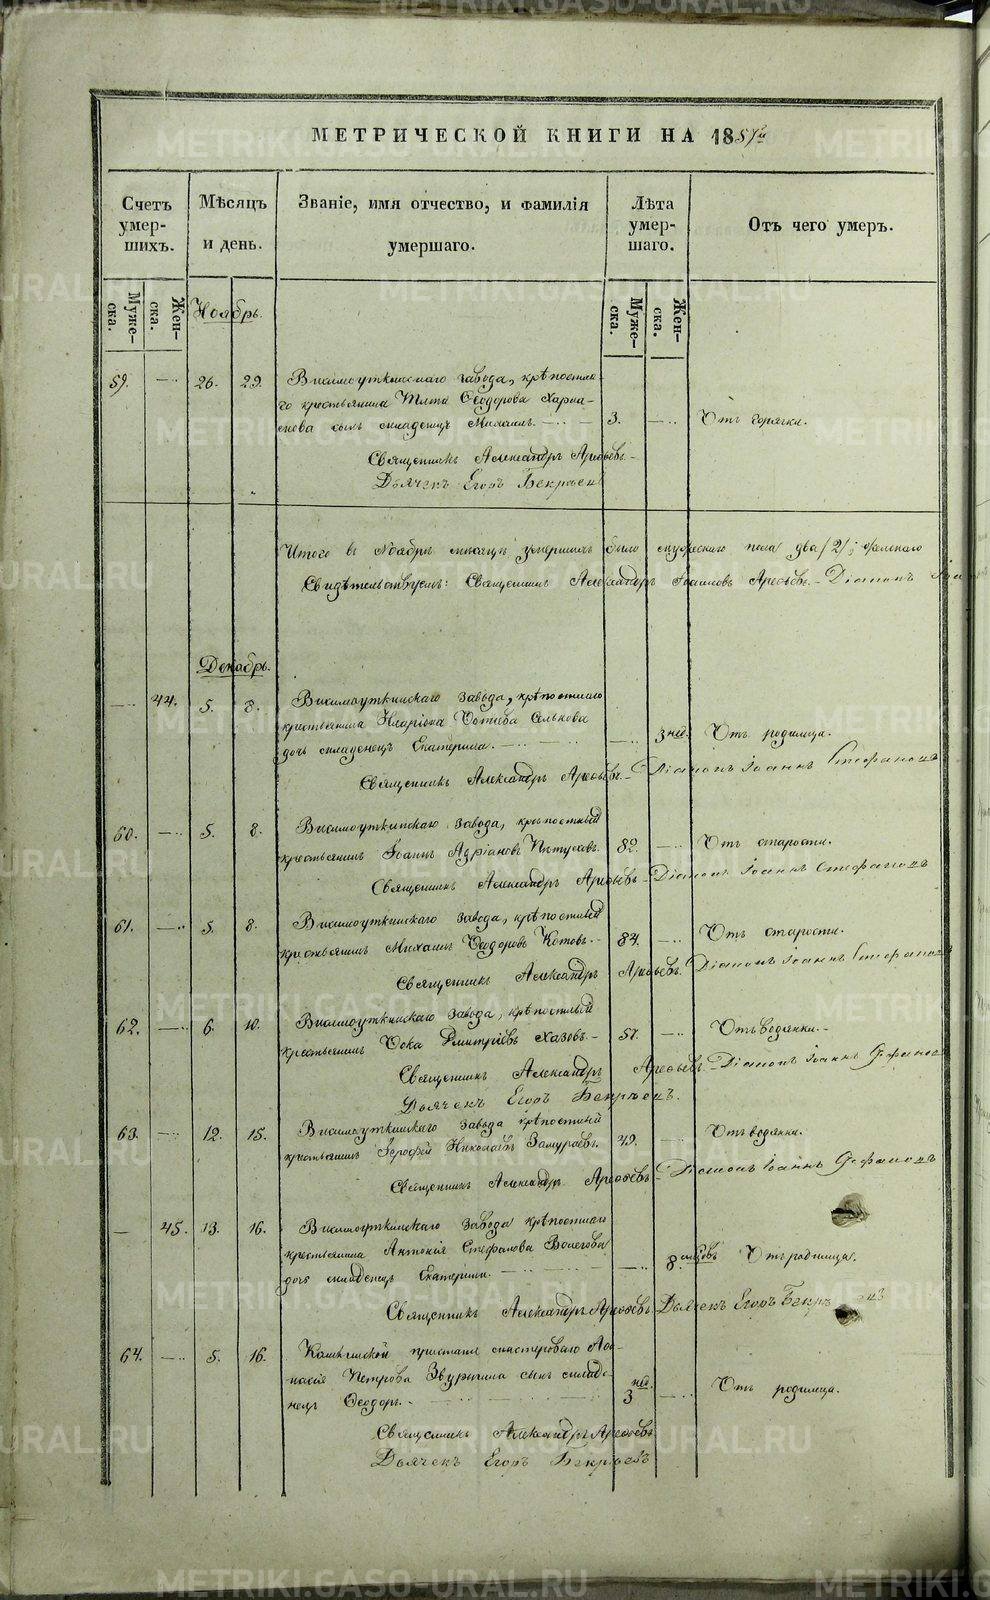 МЕТРИЧЕСКОЙ КНИГИ НА 1857й
Счетъ умер- шихъ.
Мѣсяцъ и день.
Званіе, имя отчество, и фамилія умершаго.
Лѣта умер- шаго.
Отъ чего умеръ.
Муже- ска.
Жен- ска.
Муже- ска.
Жен- ска.
Ноябрь.
59. — 26. 29. Висимоуткинскаго завода, крѣпостна-
го крестьянина Ѳеодорова
сынъ младенецъ Михаилъ. — 3. — Отъ горячки.
Священникъ Александръ Арефьевъ. —
Дьячекъ Егоръ
Итого въ Ноябрѣ месяцѣ умершихъ было мужескаго пола два /2/; женскаго
Свидѣтельствуемъ: Священникъ Александръ Іоанновъ Арефьевъ. — Діаконъ
Декабрь.
— 44. 5. 8. Висимоуткинскаго завода, крѣпостнаго
крестьянина Иларіона
дочь младенецъ Екатерина. — — 3 нед. Отъ родимца.
Священникъ Александръ Арефьевъ. — Діаконъ Іоаннъ Стефановъ
60. — 5. 8. Висимоуткинскаго завода, крѣпостный
крестьянинъ Іоаннъ Адріановъ Пѣтуховъ. 82. — Отъ старости.
Священникъ Александръ Арефьевъ — Діаконъ Іоаннъ Стефановъ
61. — 5. 8. Висимоуткинскаго завода, крѣпостный
крестьянинъ Михаилъ Ѳеодоровъ Котовъ. — 84. — Отъ старости.
Священникъ Александръ Арефьевъ. Діаконъ Іоаннъ
62. — 6. 10. Висимоуткинскаго завода, крѣпостный
крестьянинъ Фока Димитріевъ Хазовъ. — 57. — Отъ водянки. —
Священникъ Александръ Арефьевъ. — Діаконъ Іоаннъ
Дьячекъ Егоръ
63. — 12. 15. Висимоуткинскаго завода крѣпостный
крестьянинъ Николаевъ Замураевъ. 49. — Отъ водянки.
Священникъ Александръ Арефьевъ — Діаконъ Іоаннъ
— 45. 13. 16. Висимоуткинскаго завода крѣпостнаго
крестьянина Антонія Стефанова Волегова
дочь младенецъ Екатерина. — — 8 Отъ родимца.
Священникъ Александръ Арефьевъ Дьячекъ Егоръ
64. — 5. 16. пристани мастероваго Аѳа-
насія Петрова Звурыгина сынъ младе-
нецъ Ѳеодоръ. — 3 нед. — Отъ родимца.
Священникъ Александръ Арефьевъ
Дьячекъ Егоръ
METRIKI.GASO-URAL.RU